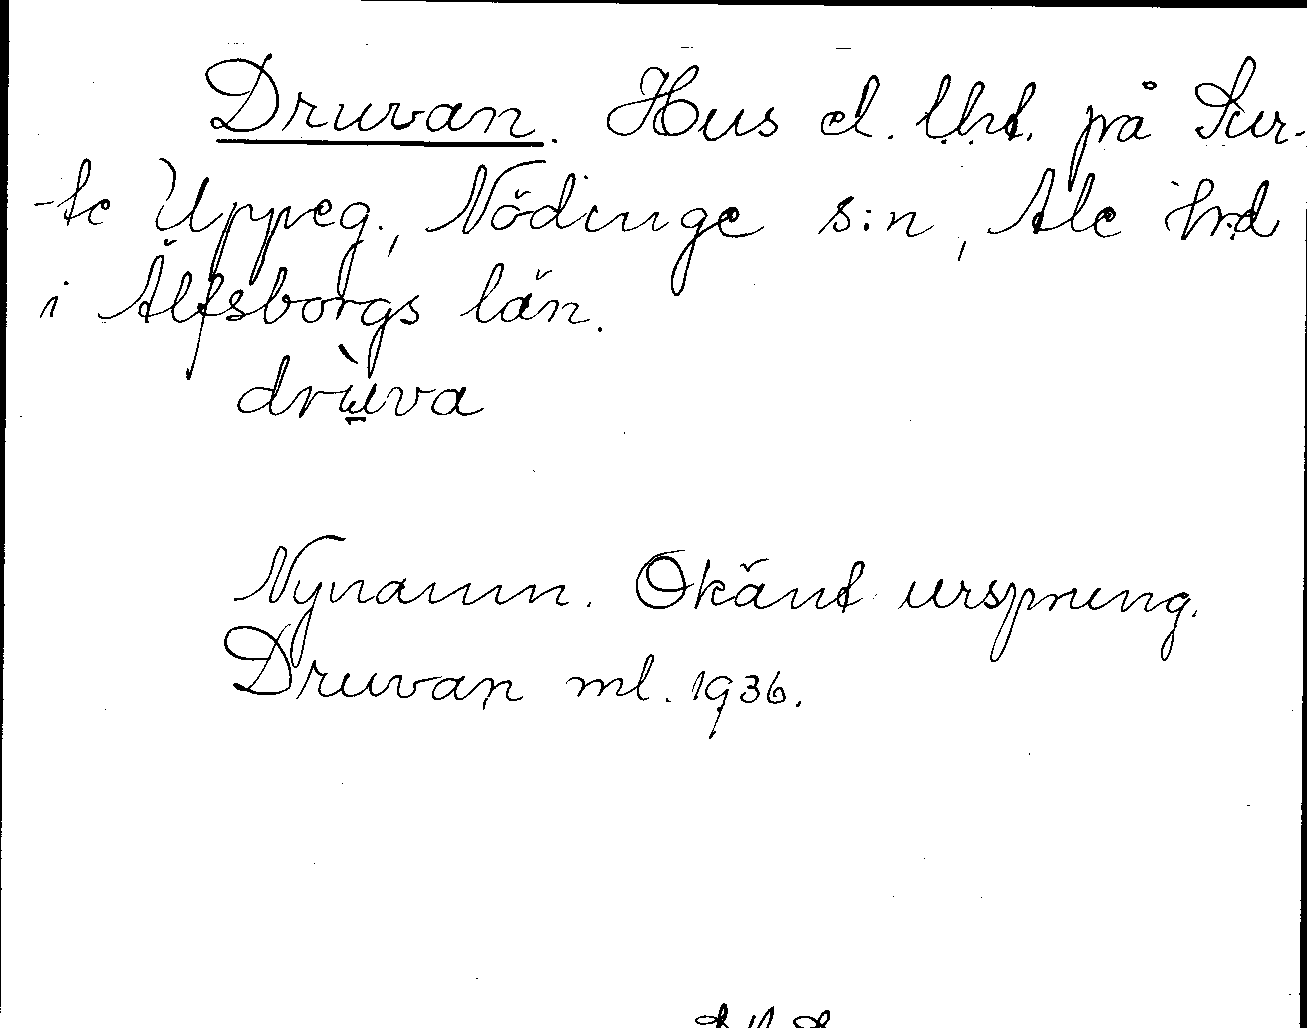 Druvan. Hus el. lht. på Sur-
-te Uppeg., Nödinge s:n, Ale hrd
i Älfsborgs län.
drùva
Nynamn. Okänt ursprung.
Druvan ml. 1936.